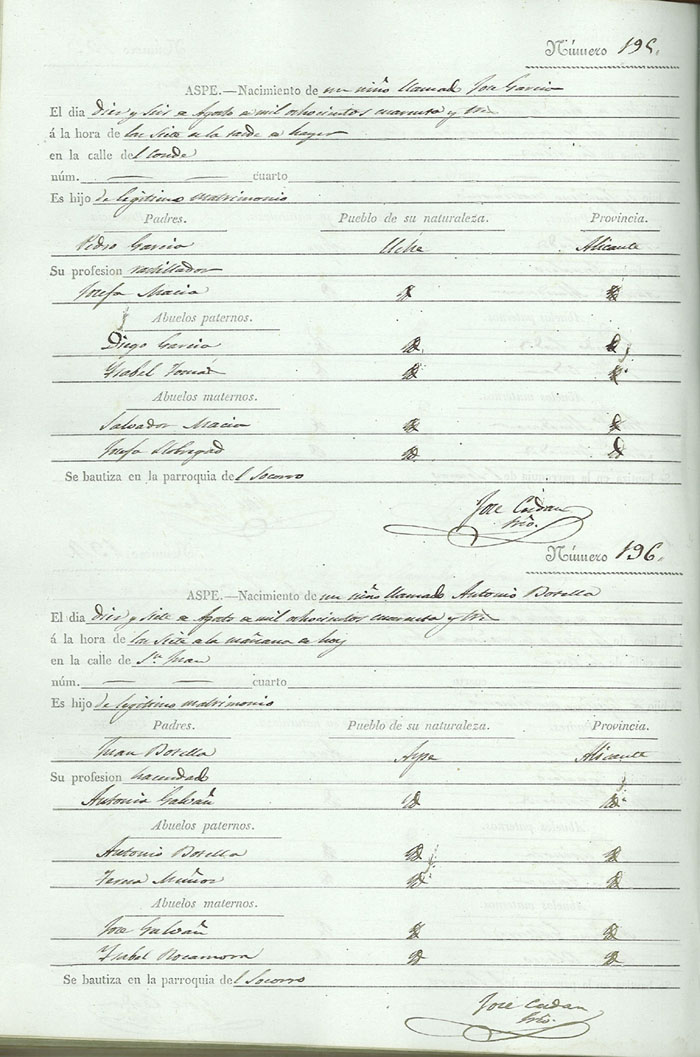 Número 195.
ASPE.—Nacimiento de un niño llamado Jose Garcia
El dia diez y seis de Agosto de mil ochocientos cuarenta y tres
á la hora de las siete de la tarde de hayer
en la calle del Conde
núm. — — cuarto
Es hijo de legitimo matrimonio
Padres. Pueblo de su naturaleza. Provincia.
Pedro Garcia Elche Alicante
Su profesion rastillador
Josefa Macia id id
Abuelos paternos.
Diego Garcia id. id
Ysabel Tomás id id.
Abuelos maternos.
Salvador Macia id id
Josefa Llobregad id id
Se bautiza en la parroquia del Socorro
Jose Cañdan
Srio.
Número 196.
ASPE.—Nacimiento de un niño llamado Antonio Botella
El dia diez y siete de Agosto de mil ochocientos cuarenta y tres
á la hora de las siete de la mañana de hoy
en la calle de Sn. Juan
núm. — — cuarto
Es hijo de legitimo matrimonio
Padres. Pueblo de su naturaleza. Provincia.
Juan Botella Aspe Alicante
Su profesion hacendado
Antonia Galvañ id id.
Abuelos paternos.
Antonio Botella id id
Teresa Muñoz id id
Abuelos maternos.
Jose Galvañ id id
Ysabel Rocamora id id
Se bautiza en la parroquia del Socorro
Jose
Srio.